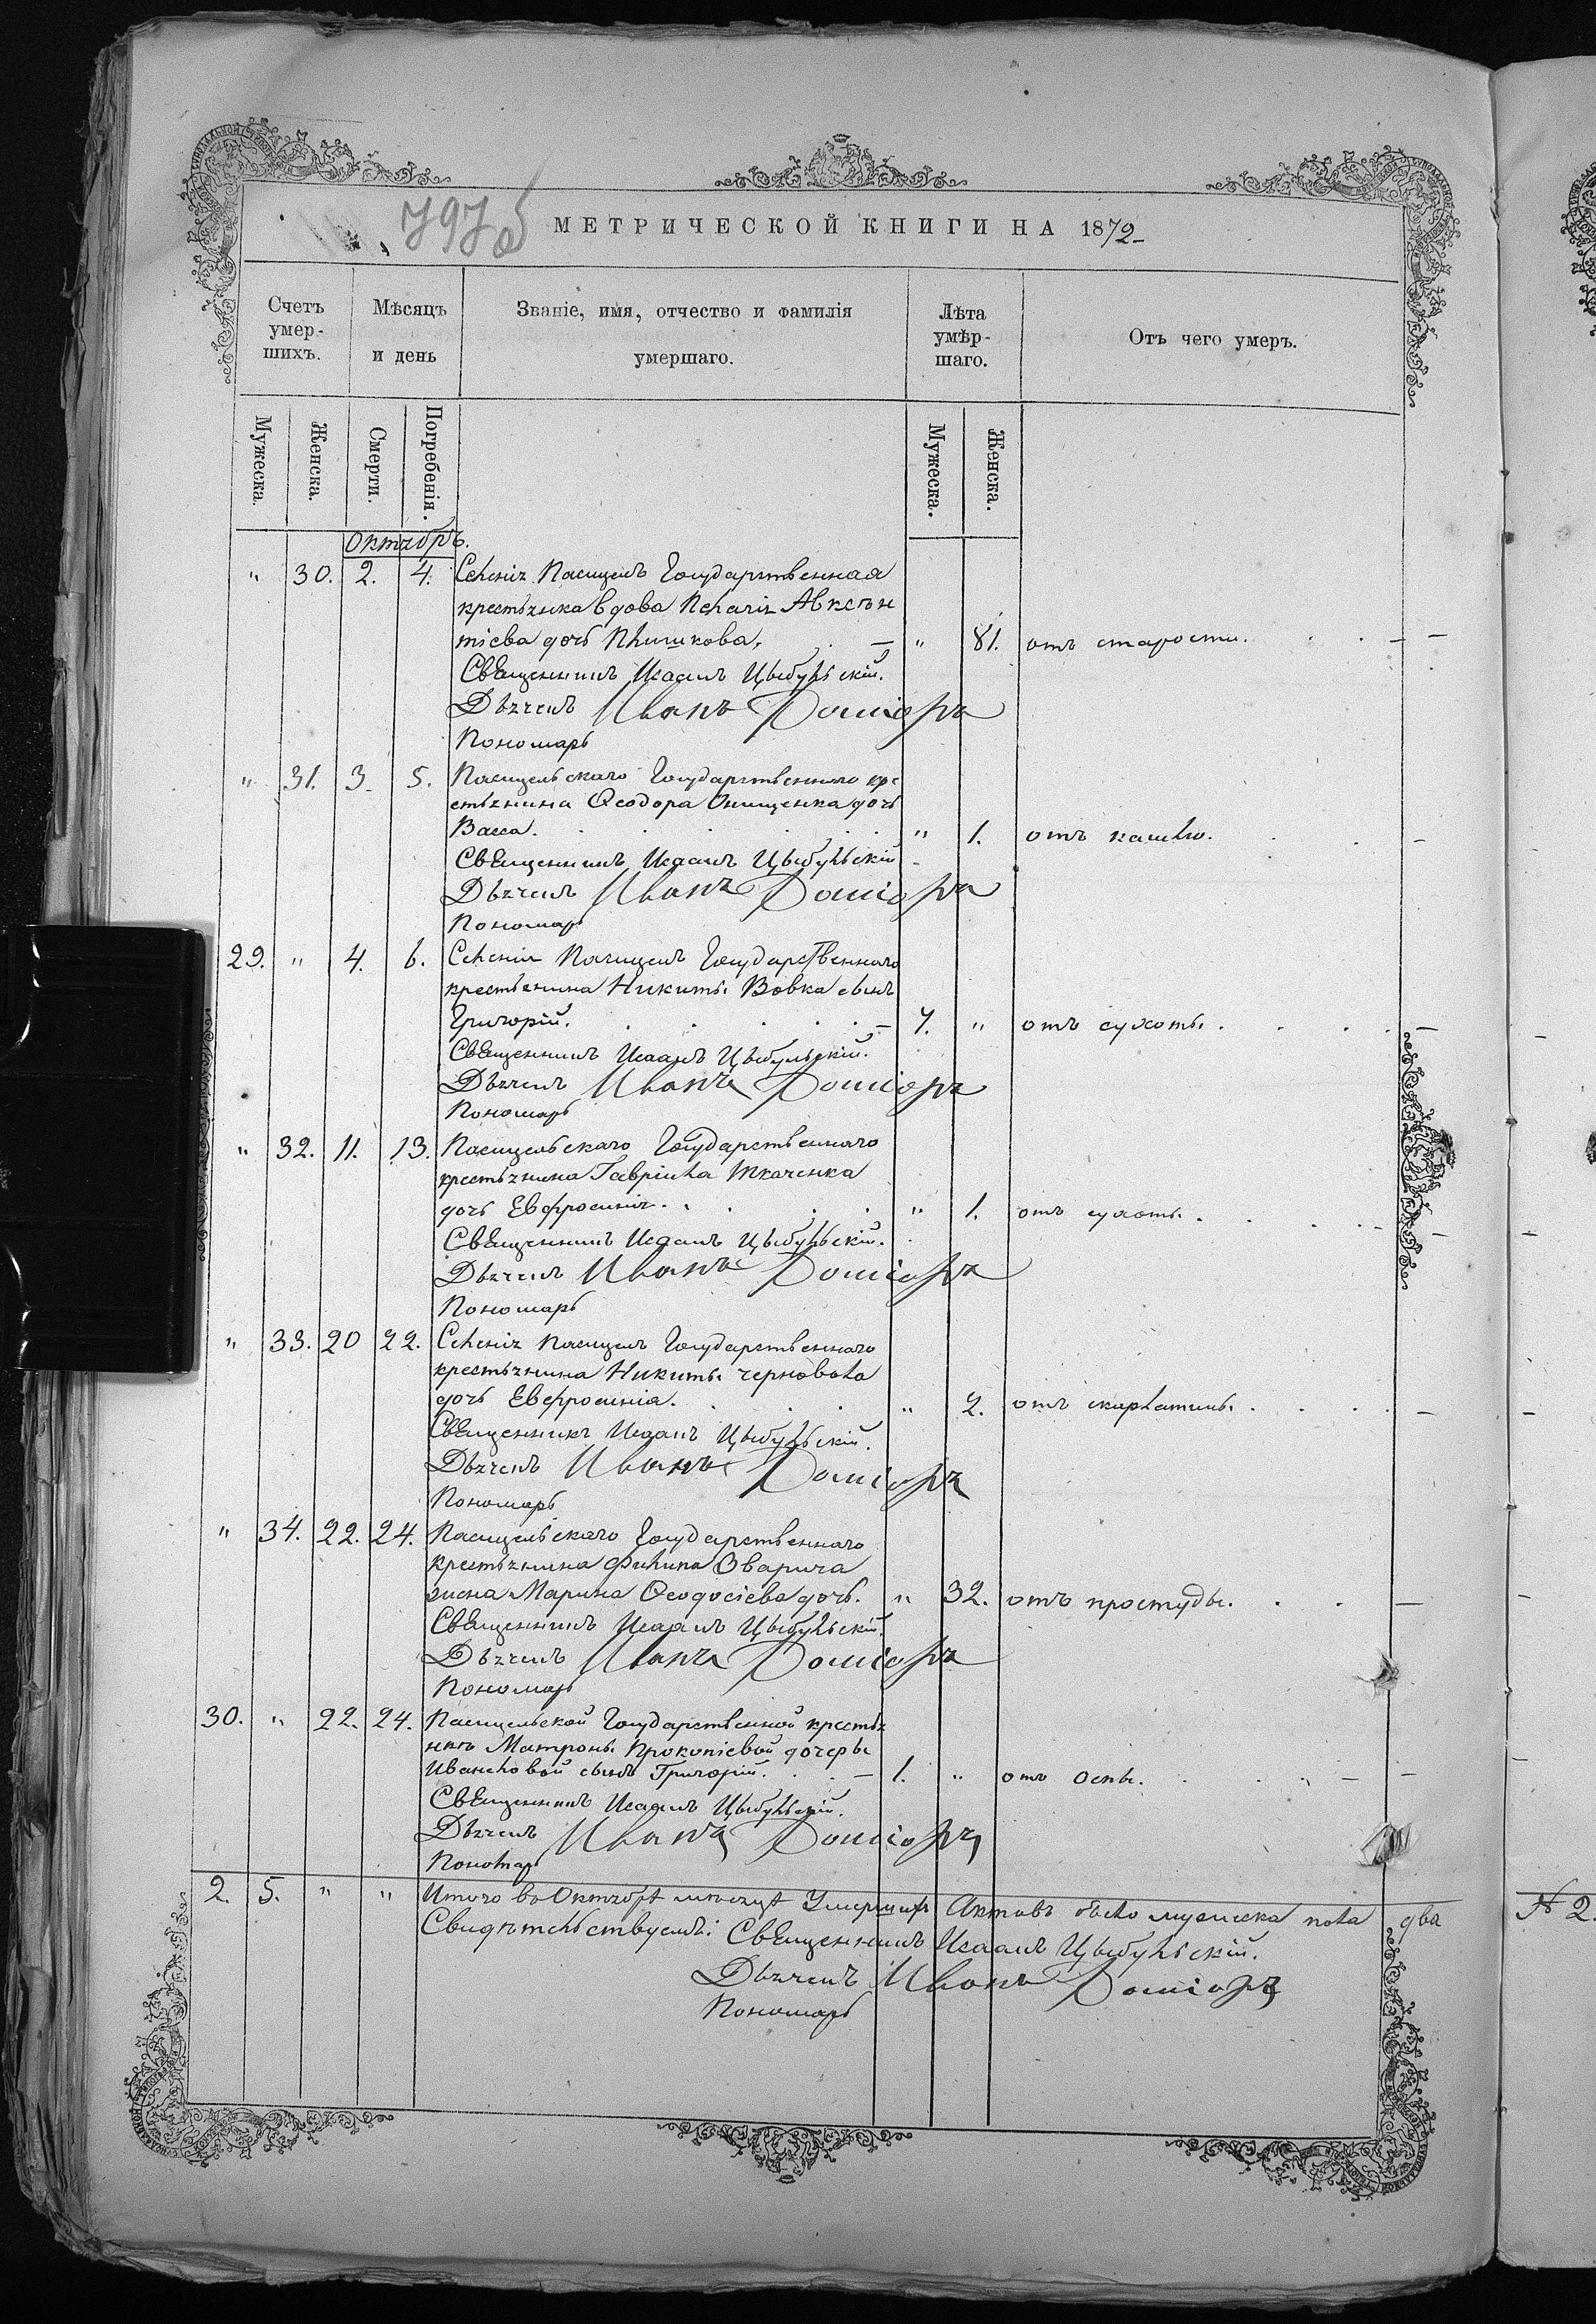 797 об
МЕТРИЧЕСКОЙ КНИГИ НА 1872
Счетъ умер-шихъ. Мѣсяцъ и день Званіе, имя, отчество и фамилія умершаго. Лѣта умѣр-шаго. Отъ чего умеръ.
Мужеска. Женска. Смерти. Погребенія. Мужеска. Женска.
Октябрь.
" 30. 2. 4. Селенія Пасицелъ Государственная
крестьянка вдова Пелагія Авксен
тіева дочь " 81. отъ старости.
Священникъ Исаакъ Цыбульскій.
Дьячекъ Иванъ
Пономарь
" 31. 3. 5. Пасицельскаго Государственнаго кре
стьянина Ѳеодора Онищенка дочь
Васса. " 1. отъ кашлю.
Священникъ Исаакъ Цыбульскій
Дьячекъ Иванъ
Пономарь
29. " 4. 6. Селенія Пасицелъ Государственнаго
крестьянина Никиты Вовка сынъ
Григорій. 7. " отъ сухоты.
Священникъ Исаакъ Цыбульскій.
Дьячекъ Иванъ
Пономарь
" 32. 11. 13. Пасицельскаго Государственнаго
крестьянина Гавріила Ткаченка
дочь Евфросинія. " 1. отъ сухоты.
Священникъ Исаакъ Цыбульскій.
Дьячекъ Иванъ
Пономарь
" 33. 20 22. Селенія Пасицелъ Государственнаго
крестьянина Никиты Черновола
дочь Евфросинія. " 2. отъ скарлатины.
Священникъ Исаакъ Цыбульскій.
Дьячекъ Иванъ
Пономарь
" 34. 22. 24. Пасицельскаго Государственнаго
крестьянина Филипа Зварича
жена Марина Ѳеодосіева дочь. " 32. отъ простуды.
Священникъ Исаакъ Цыбульскій.
Дьячекъ Иванъ
Пономарь
30. " 22. 24. Пасицельской Государственной крестья
нки Матроны Прокопіевой дочеры
Иванковой сынъ Григорій. 1. " отъ Оспы.
Священникъ Исаакъ Цыбульскій.
Дьячекъ Иванъ
Пономарь
2. 5. " " Итого въ Октябрѣ мѣсяцѣ Умершихъ Актовъ было мужеска пола два
Свидѣтельствуемъ: Священникъ Исаакъ Цыбульскій.
Дьячекъ Иванъ
Пономарь
№ 2.